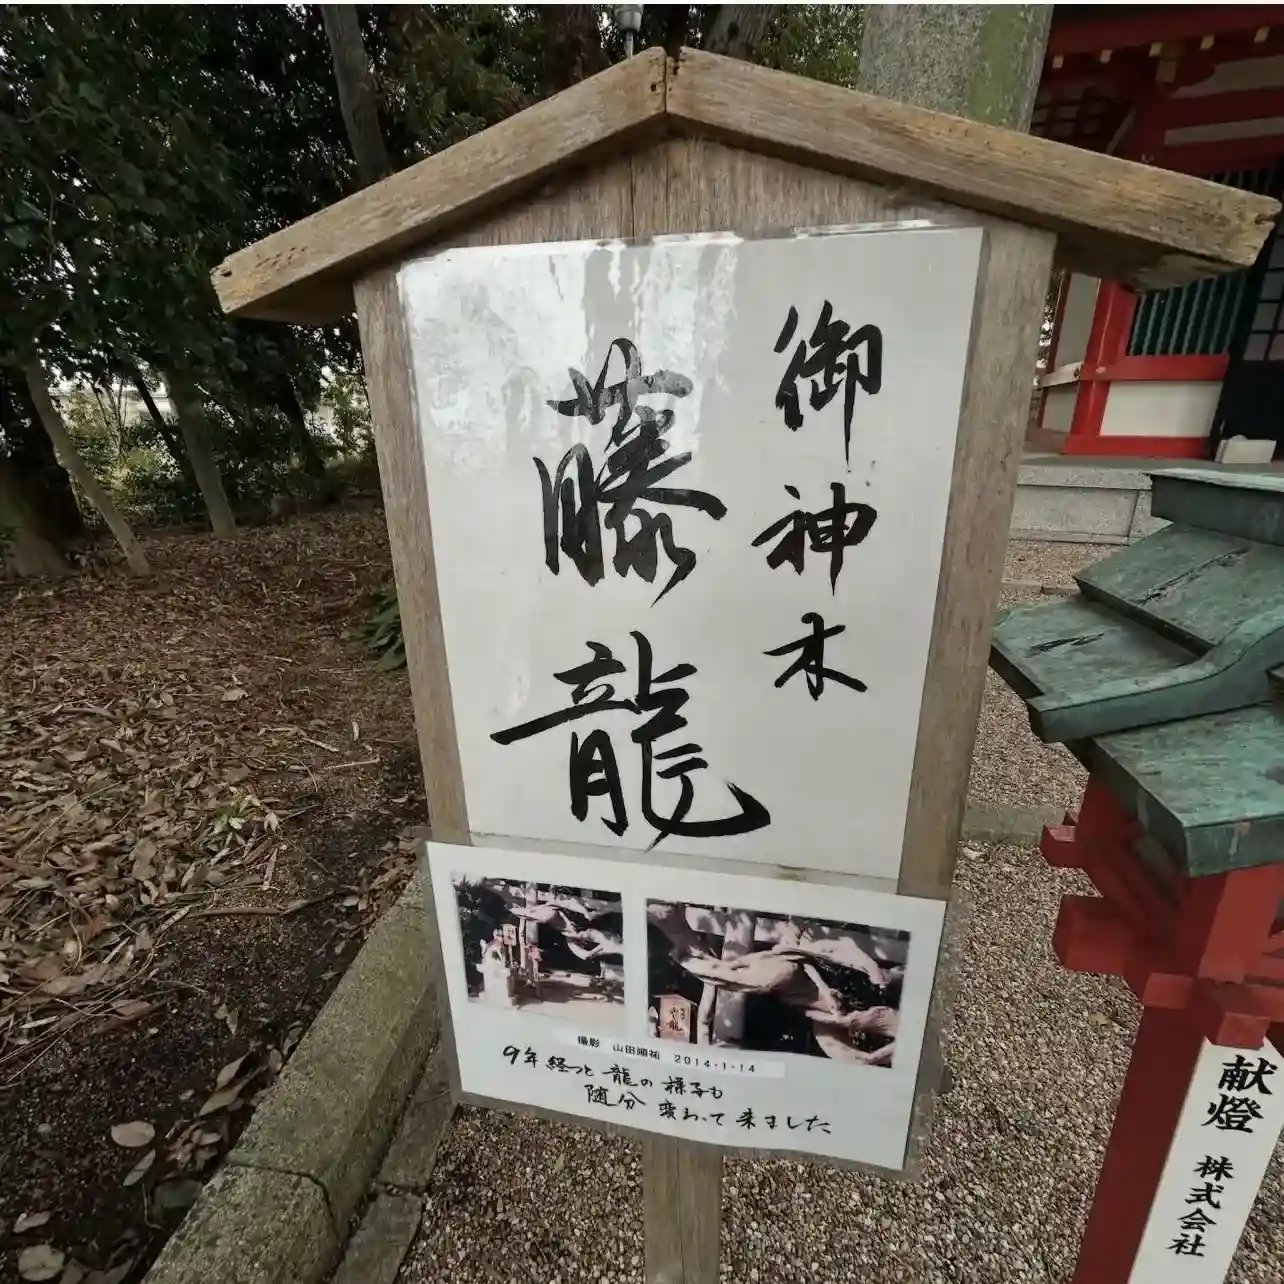 御神木
藤龍
撮影 山田順祐 2014・1・14
9年経つと龍の様子も
随分変わって来ました
献燈 株式会社